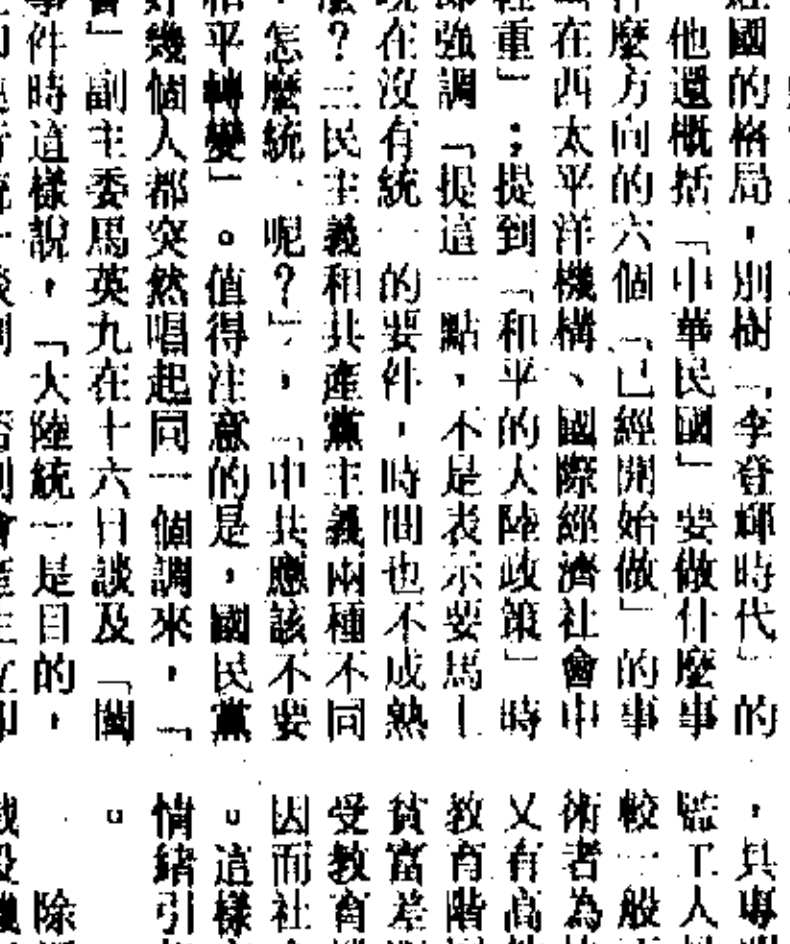 國的格局，別樹「李登輝時代」的
他還概括「中華民國」要做什麼事
麼方向的六個「已經開始做」的事
在西太平洋機構、國際經濟社會中
重」；提到「和平的大陸政策」時
強調「提這一點，不是表示要馬上
在沒有統一的要件，時間也不成熟
？三民主義和共產黨主義兩種不同
怎麼統一呢？」，「中共應該不要
平轉變」。值得注意的是，國民黨
幾個人都突然唱起同一個調來，「
」副主委馬英九在十六日談及「閩
件時這樣說，「大陸統一是目的，
，具專
監工人
較一般
術者為
又有高
教育階
貧富差
受教育
因而社
。這樣
情緒引
。
除